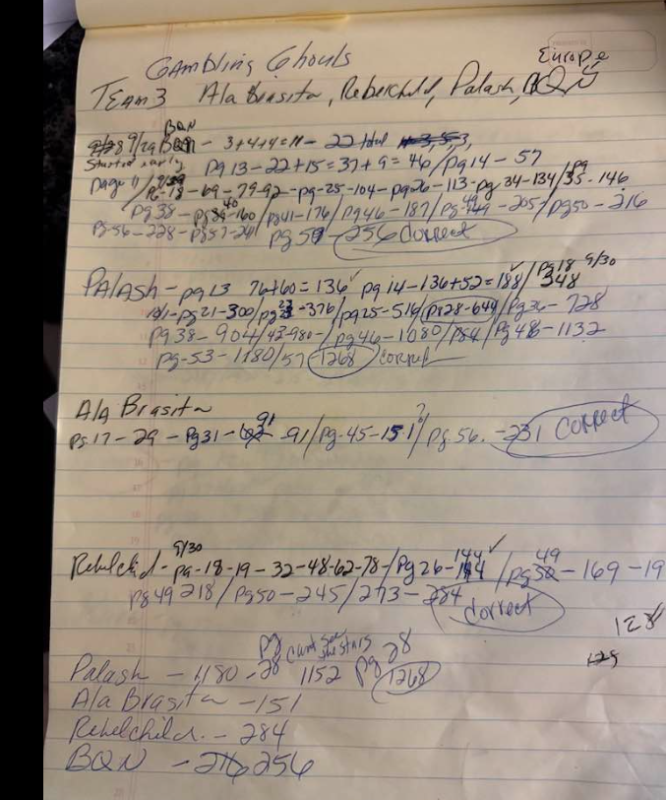 Gambling Ghouls
Europe
TEAM 3 Ala Brasita, Rebelchild, Palash, BQN
9/29 BQN - 3+4+4=11 - 22 total
Started early pg 13-22+15=37+9=46/pg 14-57
page 11/pg-18-69-79-92-pg-25-104-pg26-113-pg 34-134/pg 35-146
pg 38- 160/pg41-176/pg46-187/pg-49-205/pg50-216
pg-56-228-pg57-241 pg 256 correct
PALASH - pg 13 76+60=136✓ pg 14-136+52=188✓/pg18 9/30 348
10/1-pg21-300/pg23-376/pg25-516/pg28-644/pg36-728
pg38-904/42-980-/pg46-1080/ /pg48-1132
pg-53-1180/57 1268 correct
Ala Brasita
pg 17-29-pg31- 91 -91/pg-45-151?/pg 56. -231 correct
Rebelchild - 9/30 pg-18-19-32-48-62-78-/pg26-144✓/pg 49-169-19
pg49 218/pg50-245/273-284 correct
128
125
Palash - 1180 -28 pg can't see the stars 1152 pg 28 1268
Ala Brasita - 151
Rebelchild. - 284
BQN - 216 256